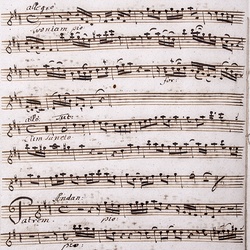 allegro
Quoniam pio
for
allo Tutti
Cum Sancto
Andan
Patrem pio
pio